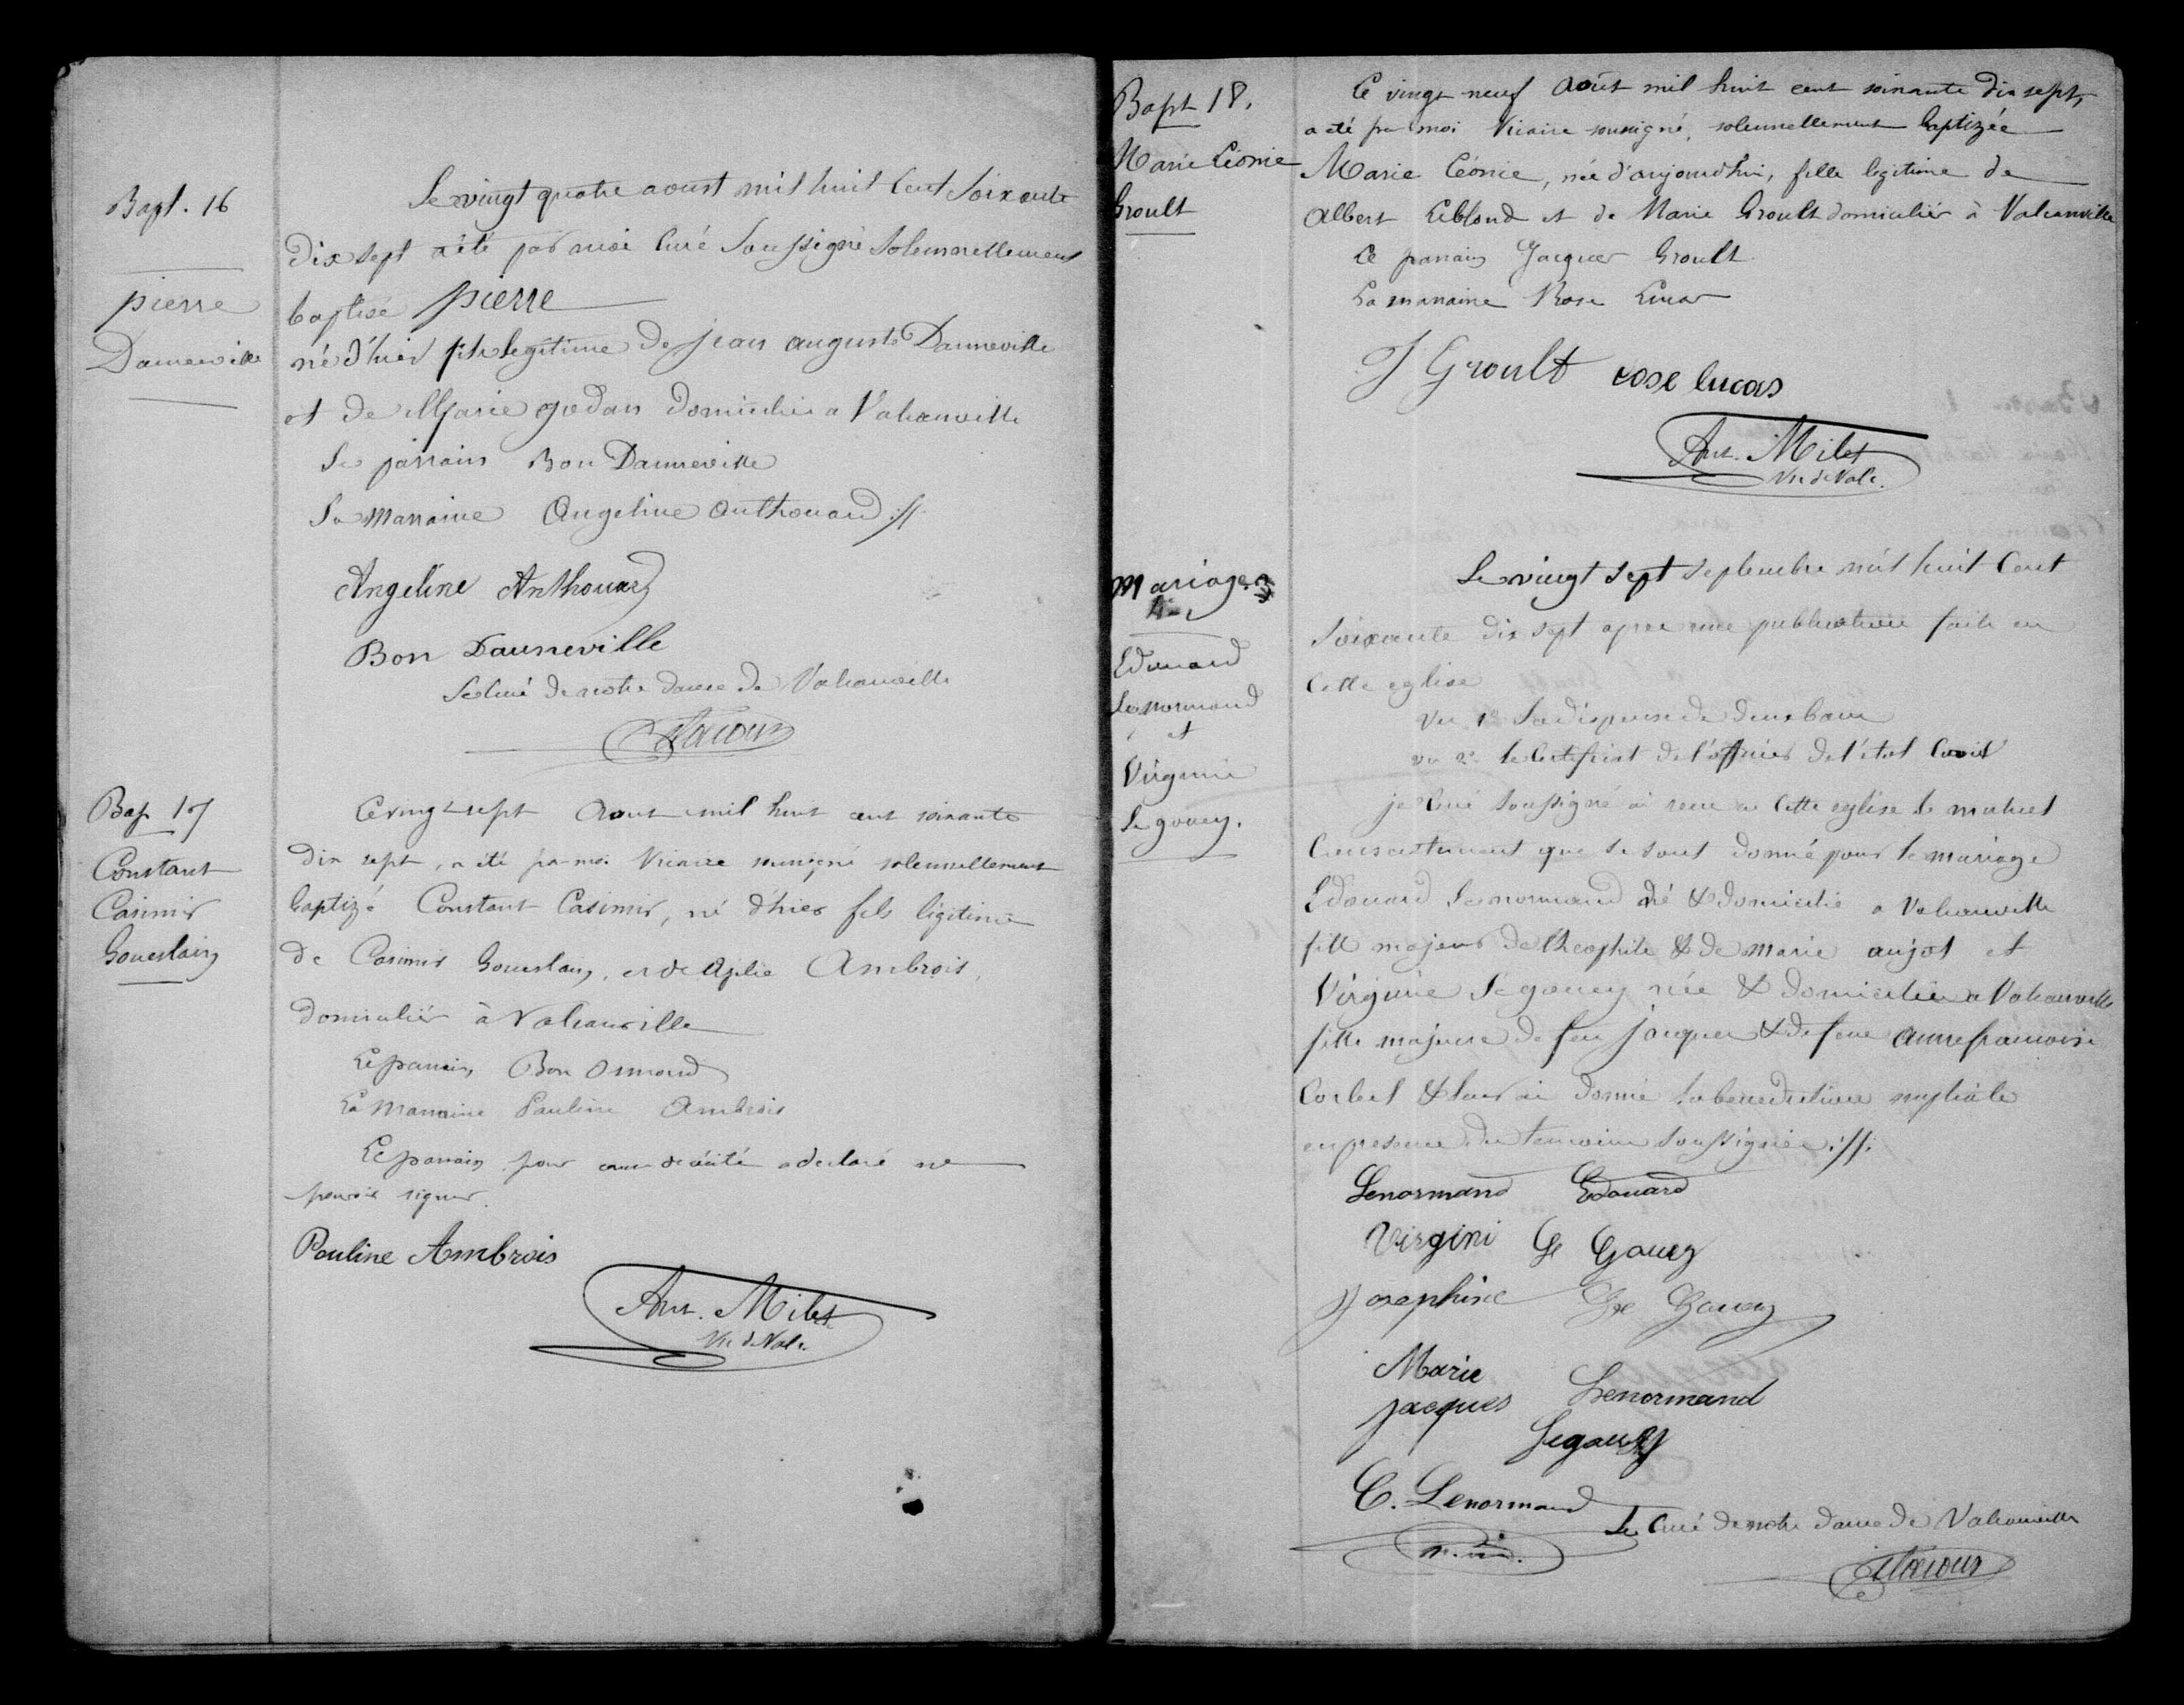 Bapt. 16
pierre
Danneville
Le vingt quatre aoust mil huit Cent Soixante
dix sept a été par moi Curé Soussigné Solemnellement
baptisé pierre
né d'hier fils legitime de jean auguste Danneville
et de Marie godan domiciliés a Valcanville
Le parrain Bon Danneville
La marraine Angeline Anthouard
Angeline Anthouard
Bon Danneville
Le Curé de notre dame de Valcanville
Bap 17
Constant
Casimir
Gouestain
Ce vingt-sept Aout mil huit cent soixante
dix sept, a été par moi Vicaire soussigné solennellement
baptizé Constant Casimir, né d'hier fils légitime
de Casimir Gouestain, et de Ambrois,
domiciliés à Valcanville
Le parrain, Bon Osmond
La Marraine Pauline Ambrois
Le parrain pour a declaré ne
pouvoir signer.
Pauline Ambrois
Ant. Milet
Vic de Valc.
Bapt 18.
Marie Léonie
Groult
Ce vingt neuf Août mil huit cent soixante dix sept,
a été par moi Vicaire soussigné, solennellement baptizée
Marie Léonie, née d'aujourd'hui, fille légitime de
Albert Leblond et de Marie Groult domiciliés à Valcanville
Le parrain Jacques Groult
La marraine Rose Lucas
J Groult rose lucas
Ant. Milet
Vic de Valc.
Mariage
Edouard
Lenormand
et
Virginie
Le gouey.
Le vingt sept septembre mil huit Cent
Soixante dix sept apres une publication faite en
Cette eglise
Vu 1º La dispense de deux bans
vu 2º le Certificat de l'officier de l'état Civil
je Curé Soussigné ai recu en Cette eglise le mutuel
Consentement que se sont donné pour le mariage
Edouard Lenormand né & domicilié a Valcanville
fils majeur de theophile & de marie anjot et
Virginie Le gouey née & domiciliée a Valcanville
fille majeure de feu jacques & de feue anne francoise
Corbet & leur ai donné la benediction nuptiale
en presence des temoins Soussignés
Lenormand Edouard
Virgini Le Gouey
Josephine Le Gouey
Marie
Jacques Lenormand
Legouey
C. Lenormand
Le Curé de notre dame de Valcanville